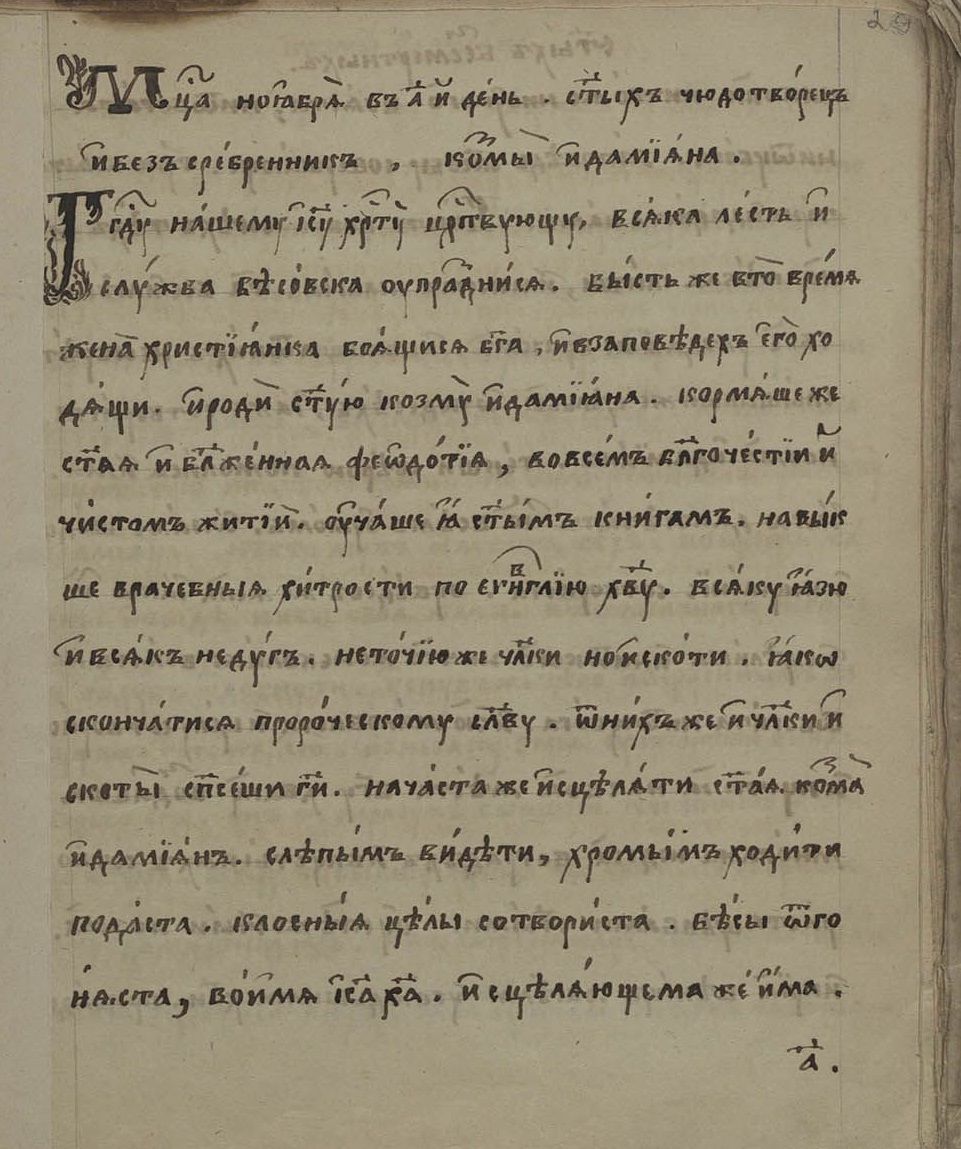 Мц҃а ноꙗбрѧ въ а҃ й де́нь . ст҃ыхъ чюдотво́рець
и҆безъ сре́бренникъ , ко҆змы̀ и҆дамїа́на .
Гд҇ꙋ на́шемꙋ і҆с҃ꙋ хр҇тꙋ̀ цр҇твꙋющꙋ, всѧ́ка ле́сть и҆
слꙋ́жба бѣсо́вска оупраздни́сѧ . бы́сть же вто̀ вре́мѧ
жена̀ христїꙗ́нка боѧ́щисѧ бг҃а , и҆взаповѣдехъ є҆го̀ хо
дѧ́щи . и҆родѝ ст҃ꙋ́ю козмꙋ̀ и҆дамїꙗ́на . кормѧ́ше же
ст҃аѧ и҆ бл҃же́ннаѧ феѡдо́тїѧ , вовсе́мъ бл҃гоче́стїи и҆
чи́стомъ житїѝ . оу҆ча́ше ꙗ҆̀ ст҃ы́мъ кни́гамъ . навы́к
ше врачебныѧ хи́трости по єѵн҃глїю хв҃ꙋ . всѧ́кꙋ ꙗ҆́зю
и҆всѧ́къ недꙋ́гъ . нето́чїю же чл҃ки но и ско́ти . ꙗ҆́кѡ
сконча́тисѧ проро́ческомꙋ сл҃вꙋ . ѿни́хъ же и҆ чл҃ки и҆
скоты̀ сп҃се́ши гд҇и . нача́ста же и҆сцѣлѧ́ти ст҃а́ѧ ко҆зма̀
и҆дамїа́нъ . слѣпы́мъ ви́дѣти , хромы́мъ ходи́ти
пода́ста . клосны́ѧ цѣ́лы сотвори́ста . бѣ́сы ѿго
нѧ́ста , во́имѧ і҆с҃а хр҃а . и҆сцѣлѧ́ющема же и҆́ма .
а҃ .